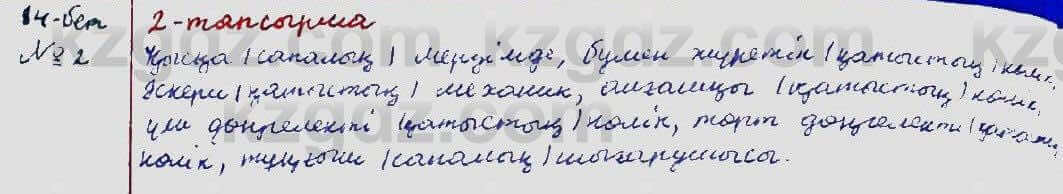 14-бет 2-тапсырма
№ 2 Қысқа /сапалық/ мерзімде, бумен жүретін /қатыстық/ көлік,
әскери /қатыстық/ механик, алғашқы /қатыстық/ көлік,
үш дөңгелекті /қатыстық/ көлік, төрт дөңгелекті
көлік, тұңғыш /сапалық/ шығарушысы.